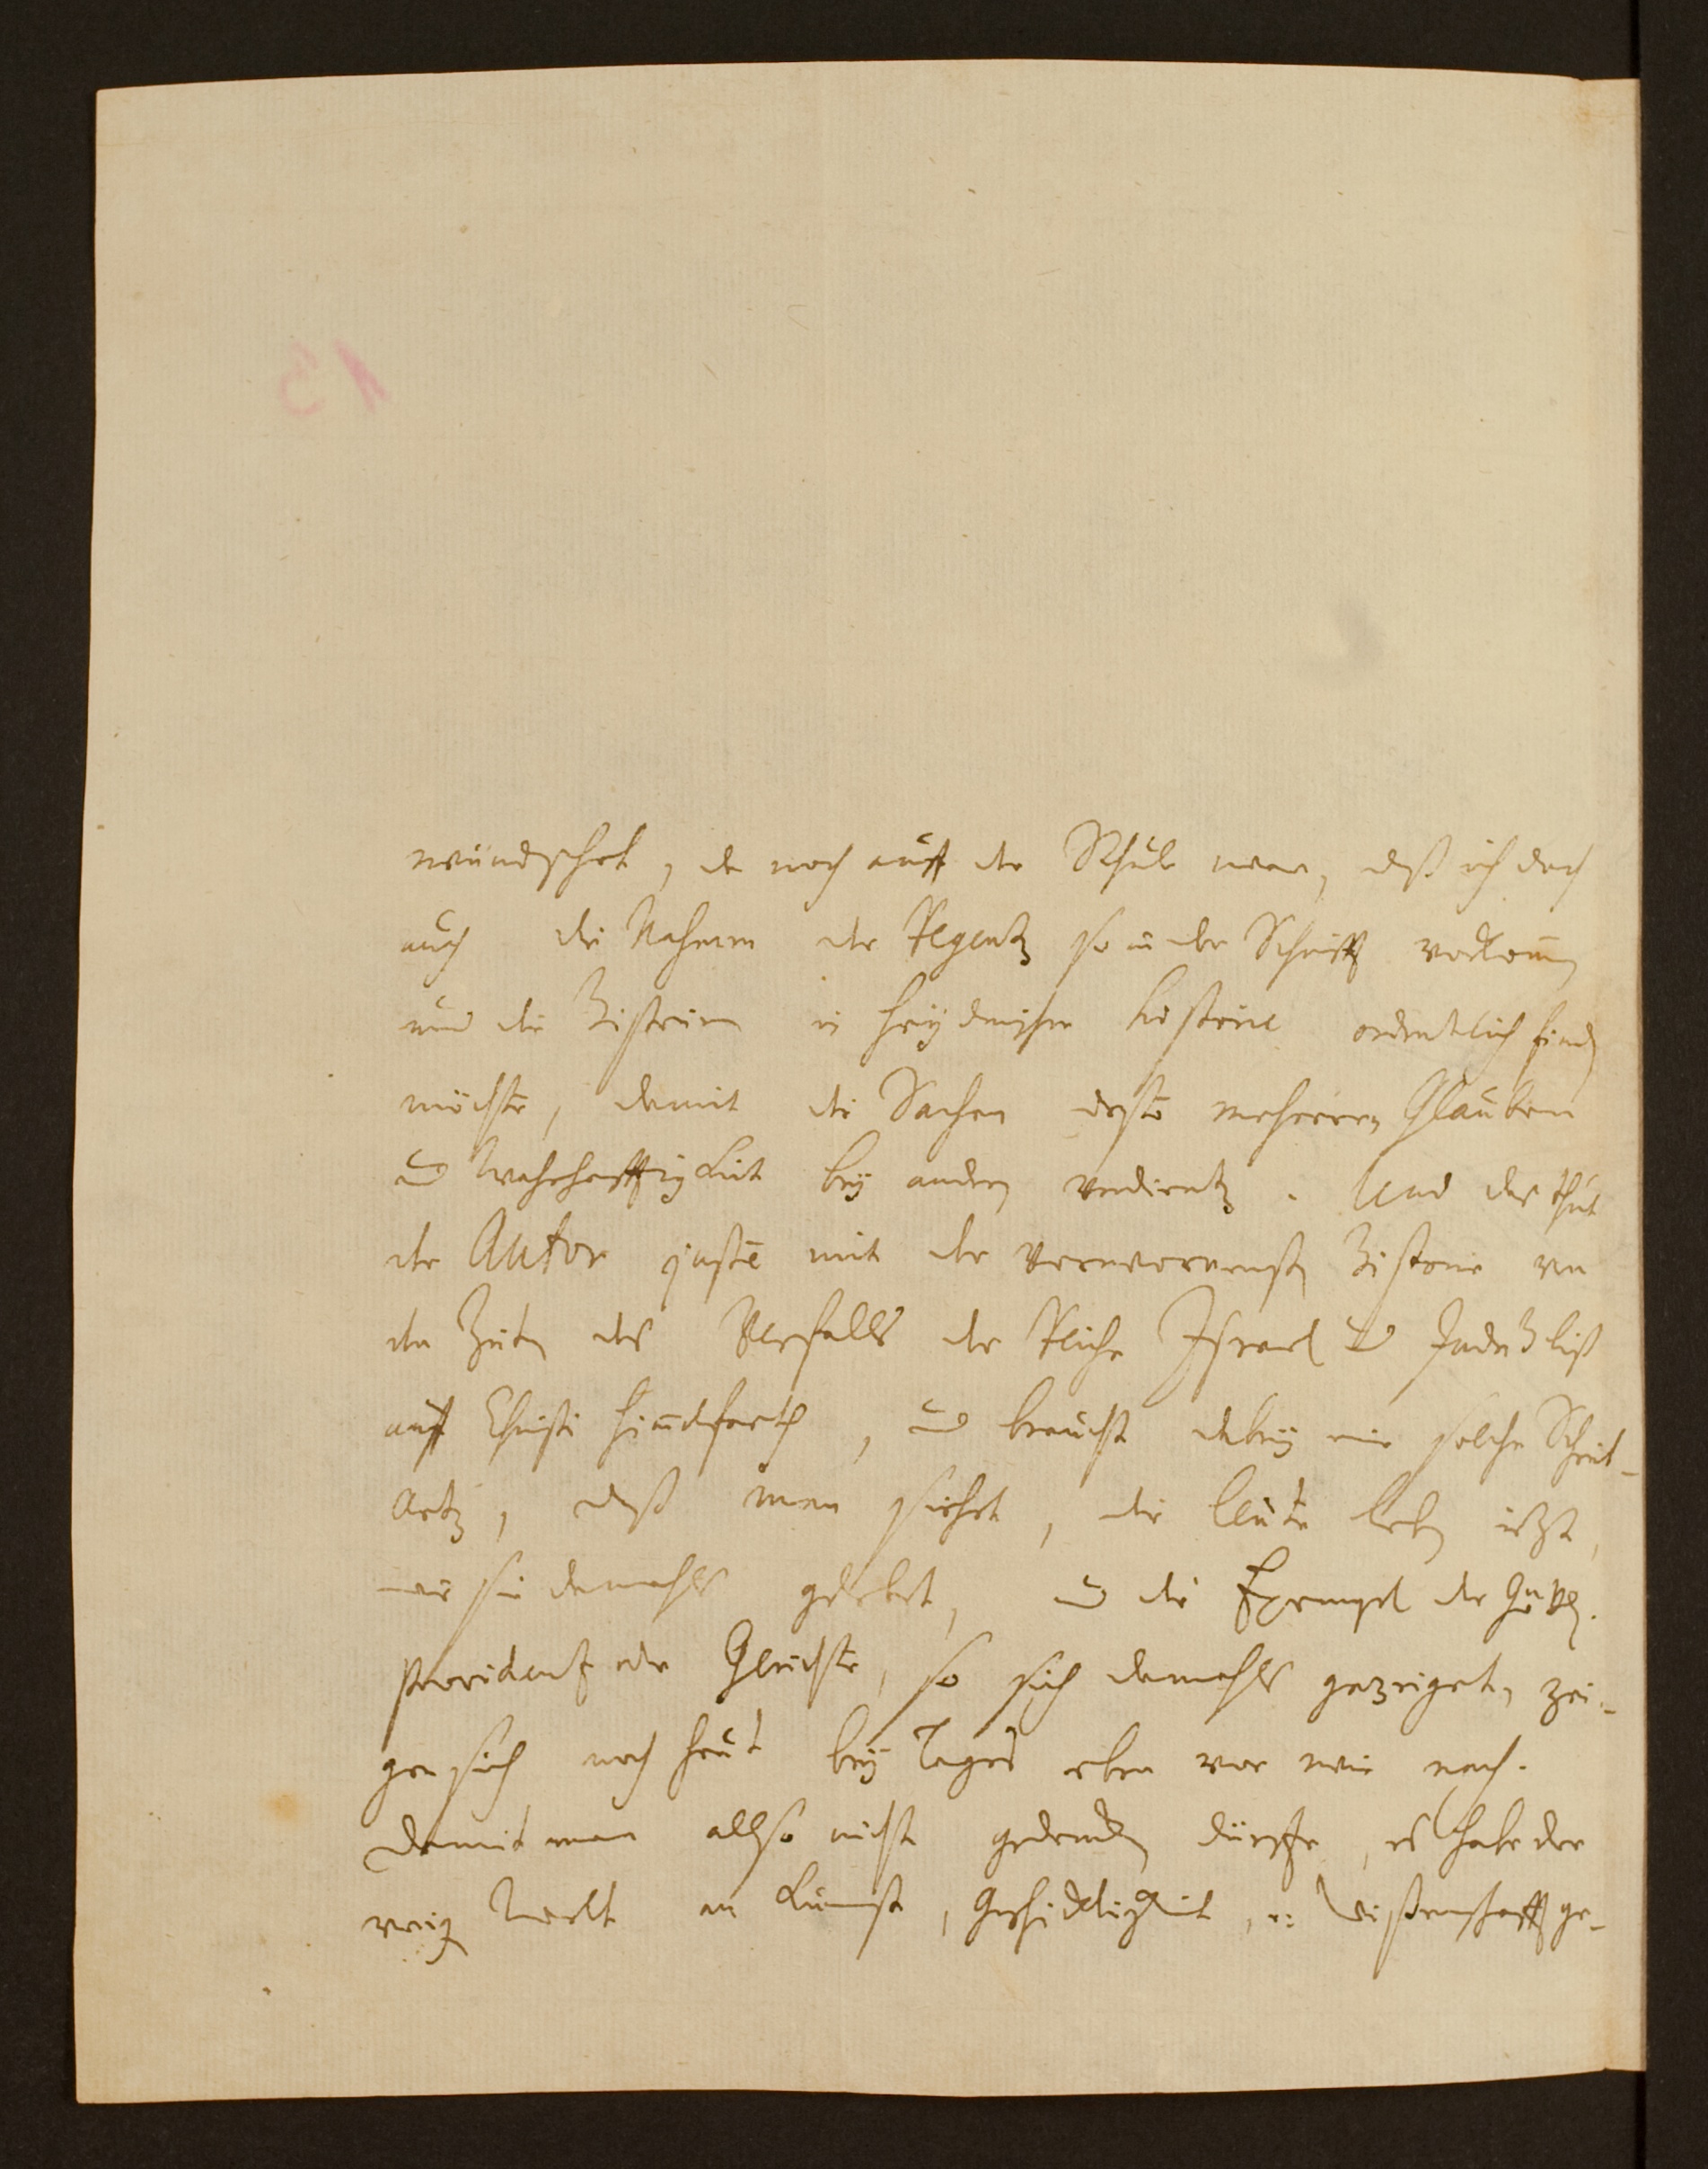 wündschet, da noch auff der Schule war, daß ich doch
auch die Nahmen der Regenten so in der Schrifft vorkommen
und die Historien in heydnischer Historie ordentlich finden
möchte, damit die Sachen desto mehrern Glauben
und Wahrhafftigkeit bey andern verdienten. Und das thut
der Autor juste mit der verworrensten Historie von
den Zeiten des Verfalls der Reiche Israel und Juda biß
auff Christi Himmelfarth, und braucht dabey eine solche Schreib-
Artz, daß man siehet, die Leute leben itzt,
wie sie damahls gelebet, und die Exempel der Göttl.
Providentz oder Gerichte, so sich damahls gezeiget, zei-
gen sich noch heut bey Tages eben vor wie nach.
Damit man allso nicht gedencken dürffe, es habe der
vorig Welt an Kunst, Geschicklichkeit, u: Wißenschafft ge-